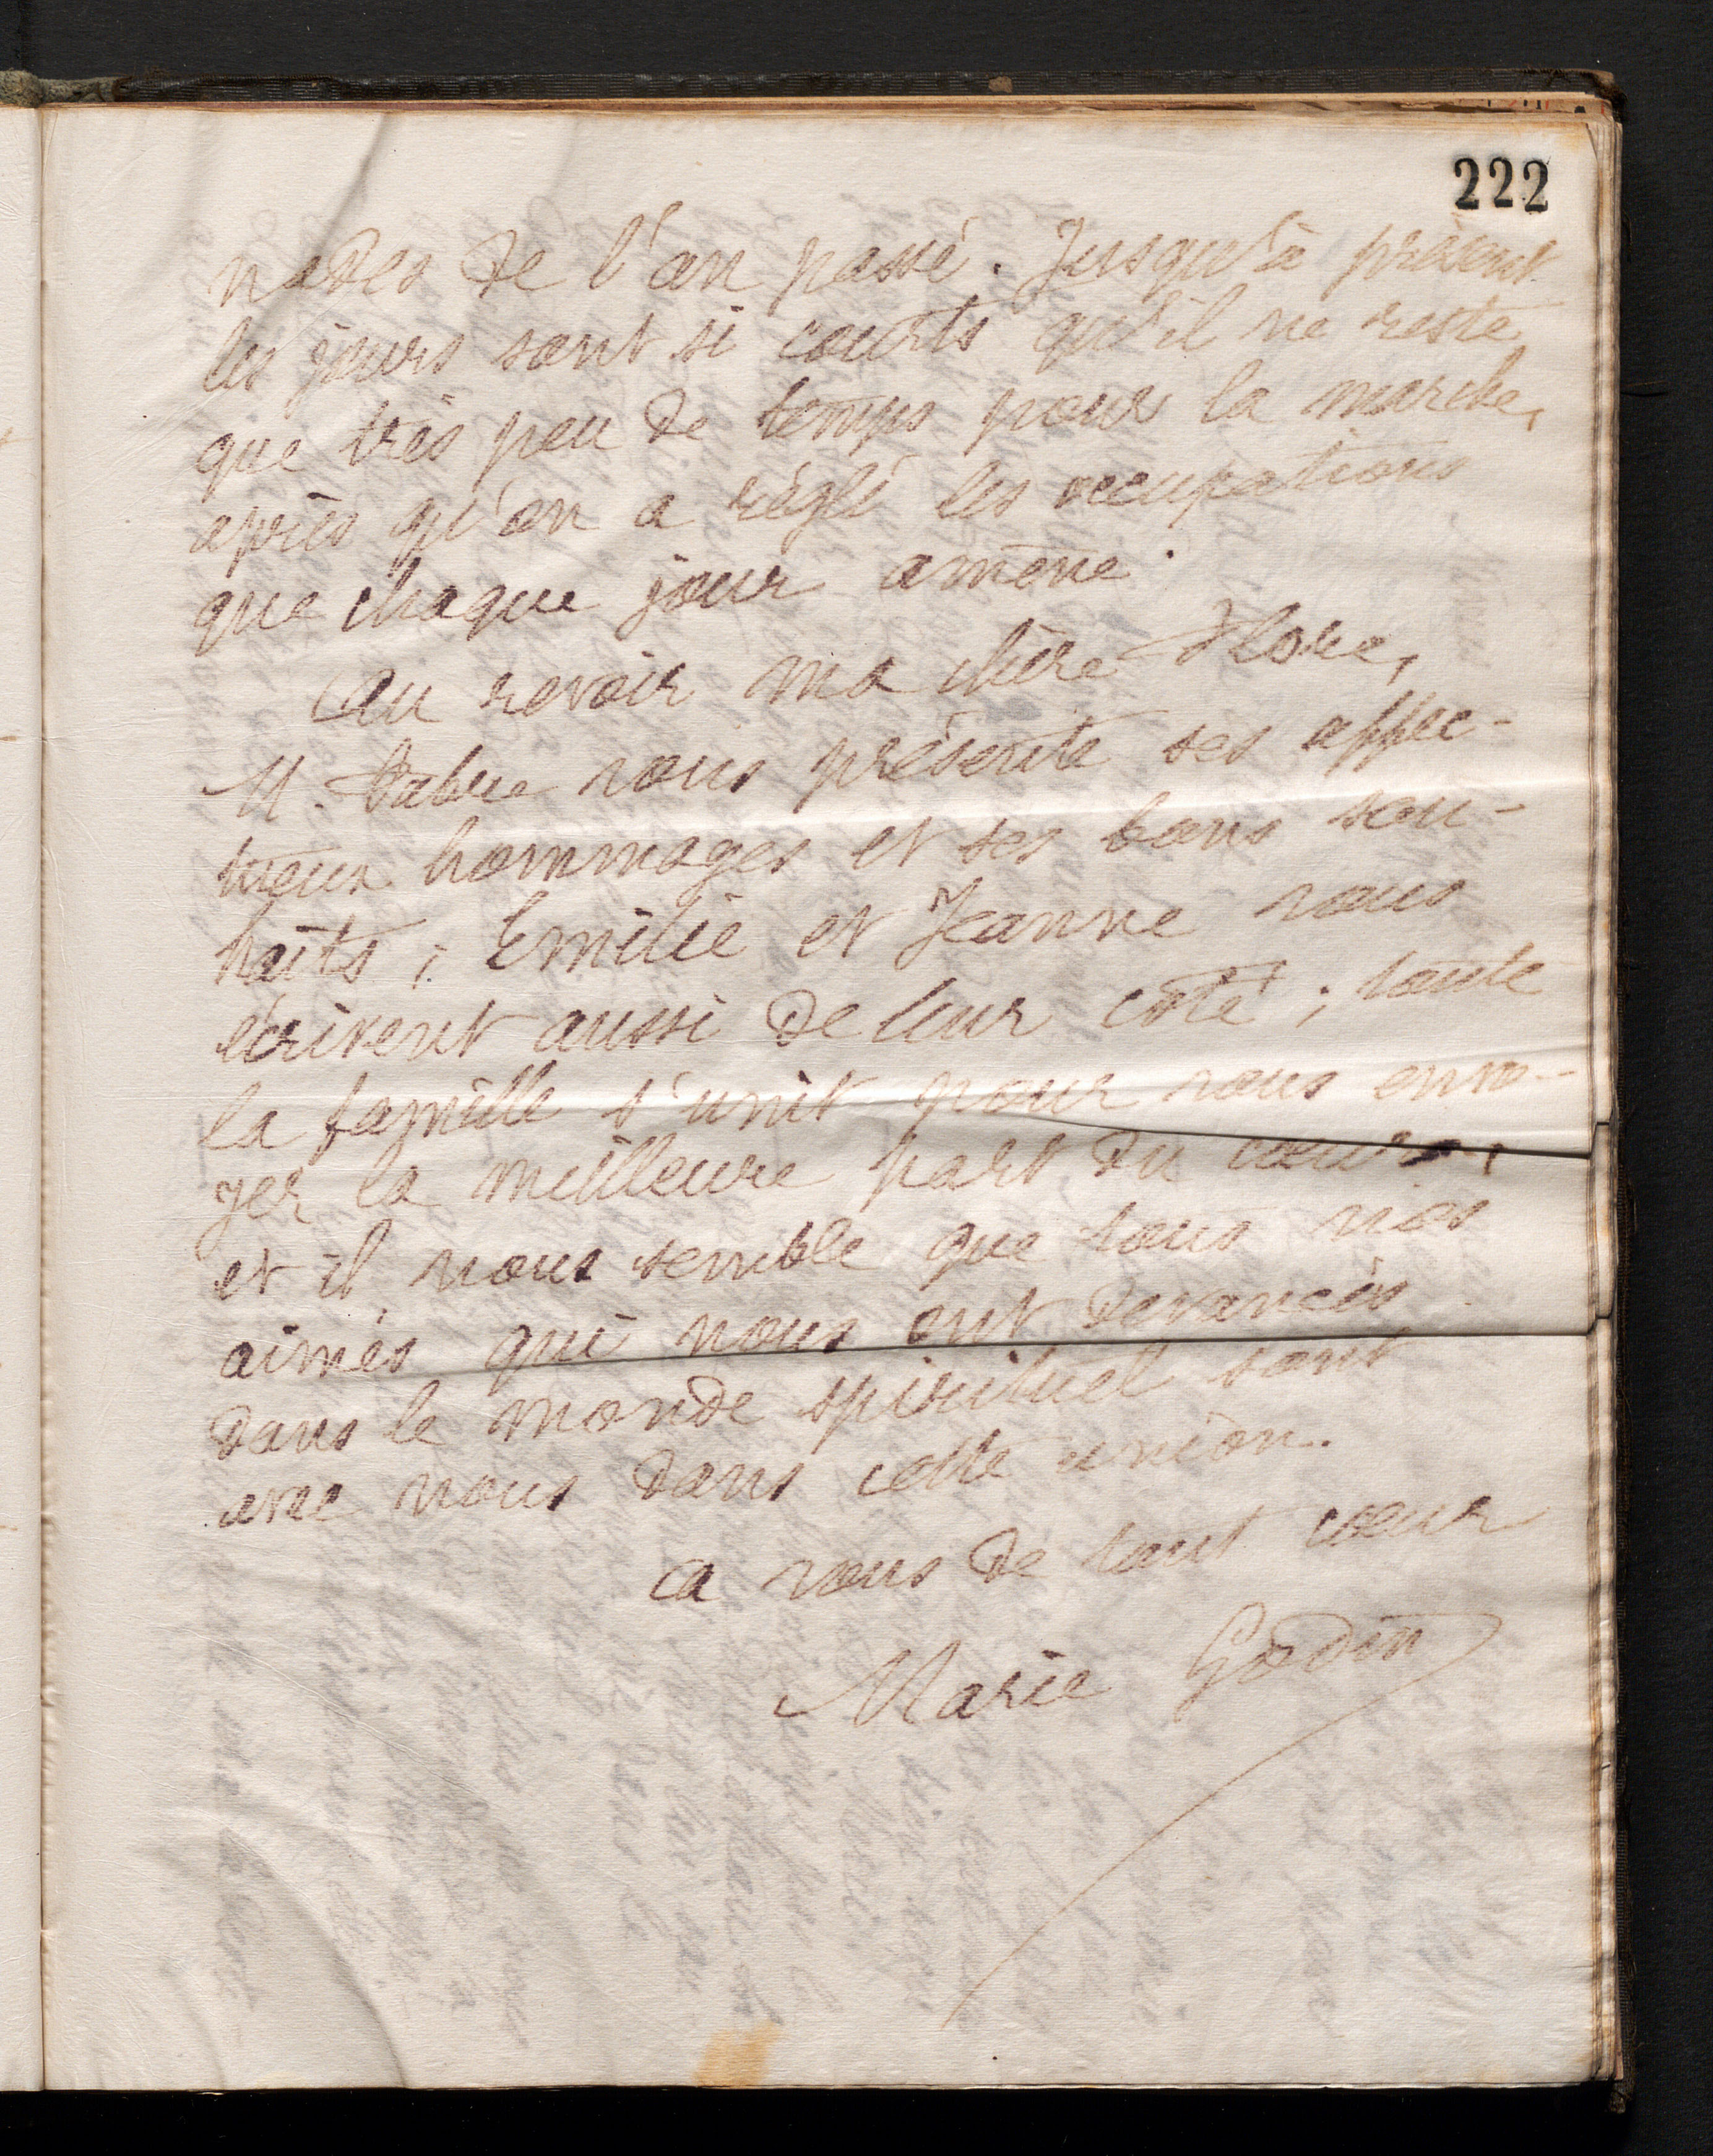 222
nades de l'an passé. Jusqu'à présent
les jours sont si courts qu'il ne reste
que très peu de temps pour la marche,
après qu'on a réglé les occupations
que chaque jour amène.
Au revoir ma chère Flore,
M. Fabre vous présente ses affec-
tueux hommages et ses bons sou-
haits ; Emilie et Jeanne vous
écrivent aussi de leur côté ; toute
la famille s'unit pour vous envo-
yer la meilleure part du cœur,
et il nous semble que tous nos
aimés qui nous ont devancés
dans le monde spirituel sont
avec nous dans cette union.
A vous de tout cœur
Marie Godin